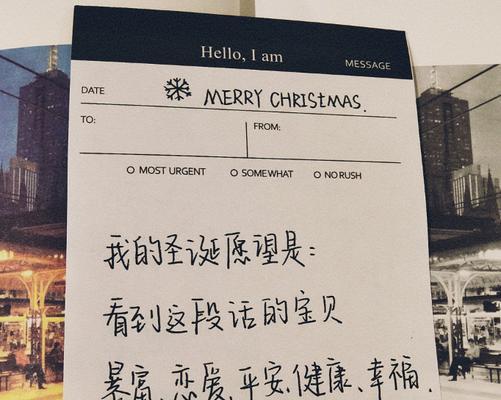 Hello, I am
MESSAGE
DATE MERRY CHRISTMAS.
TO: FROM:
MOST URGENT SOMEWHAT NO RUSH
我的圣诞愿望是:
看到这段话的宝贝
暴富、恋爱、平安、健康、幸福.